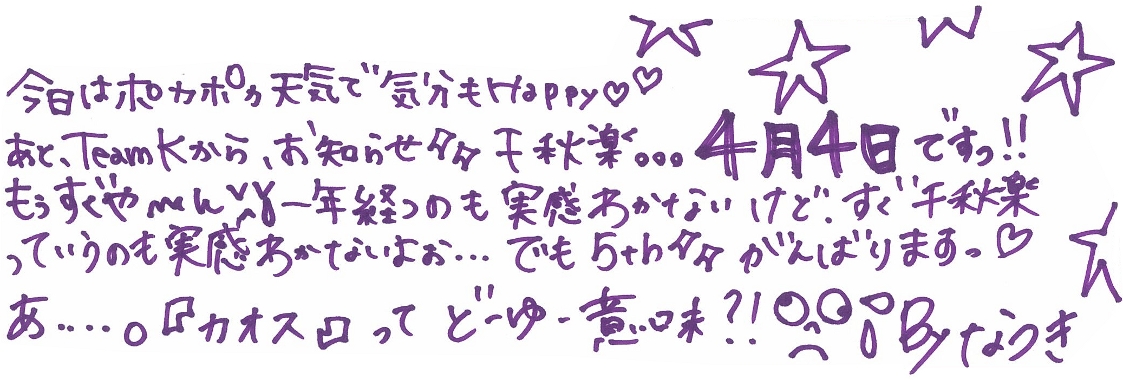 今日はポカポカ天気で気分もHappy♡♡
あと、TeamKから、お知らせタタ 千秋楽。。。4月4日ですっ!!
もうすぐやんん 一年経つのも実感わかないけど、すぐ千秋楽
っていうのも実感わかないよぉ… でも5thタタがんばりますっ♡
あ……。『カオス』ってどーゆー意味?! Byなつき